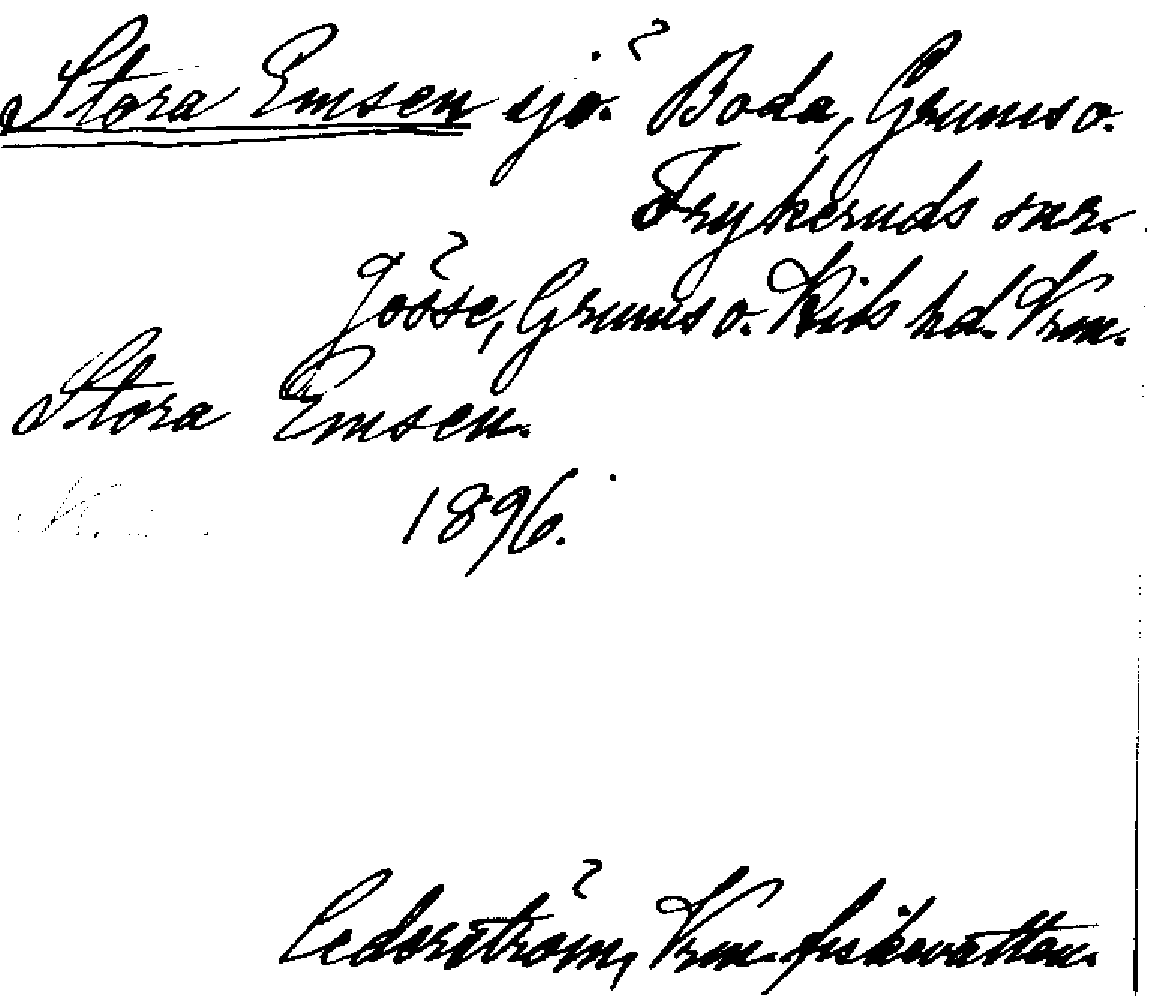 Stora Emsen sjö. Boda, Grums o.
Frykeruds snr.
Jösse, Grums o. Kils hd. Vrm.
Stora Emsen.
1896.
Cederström, Vrm. fiskevatten.